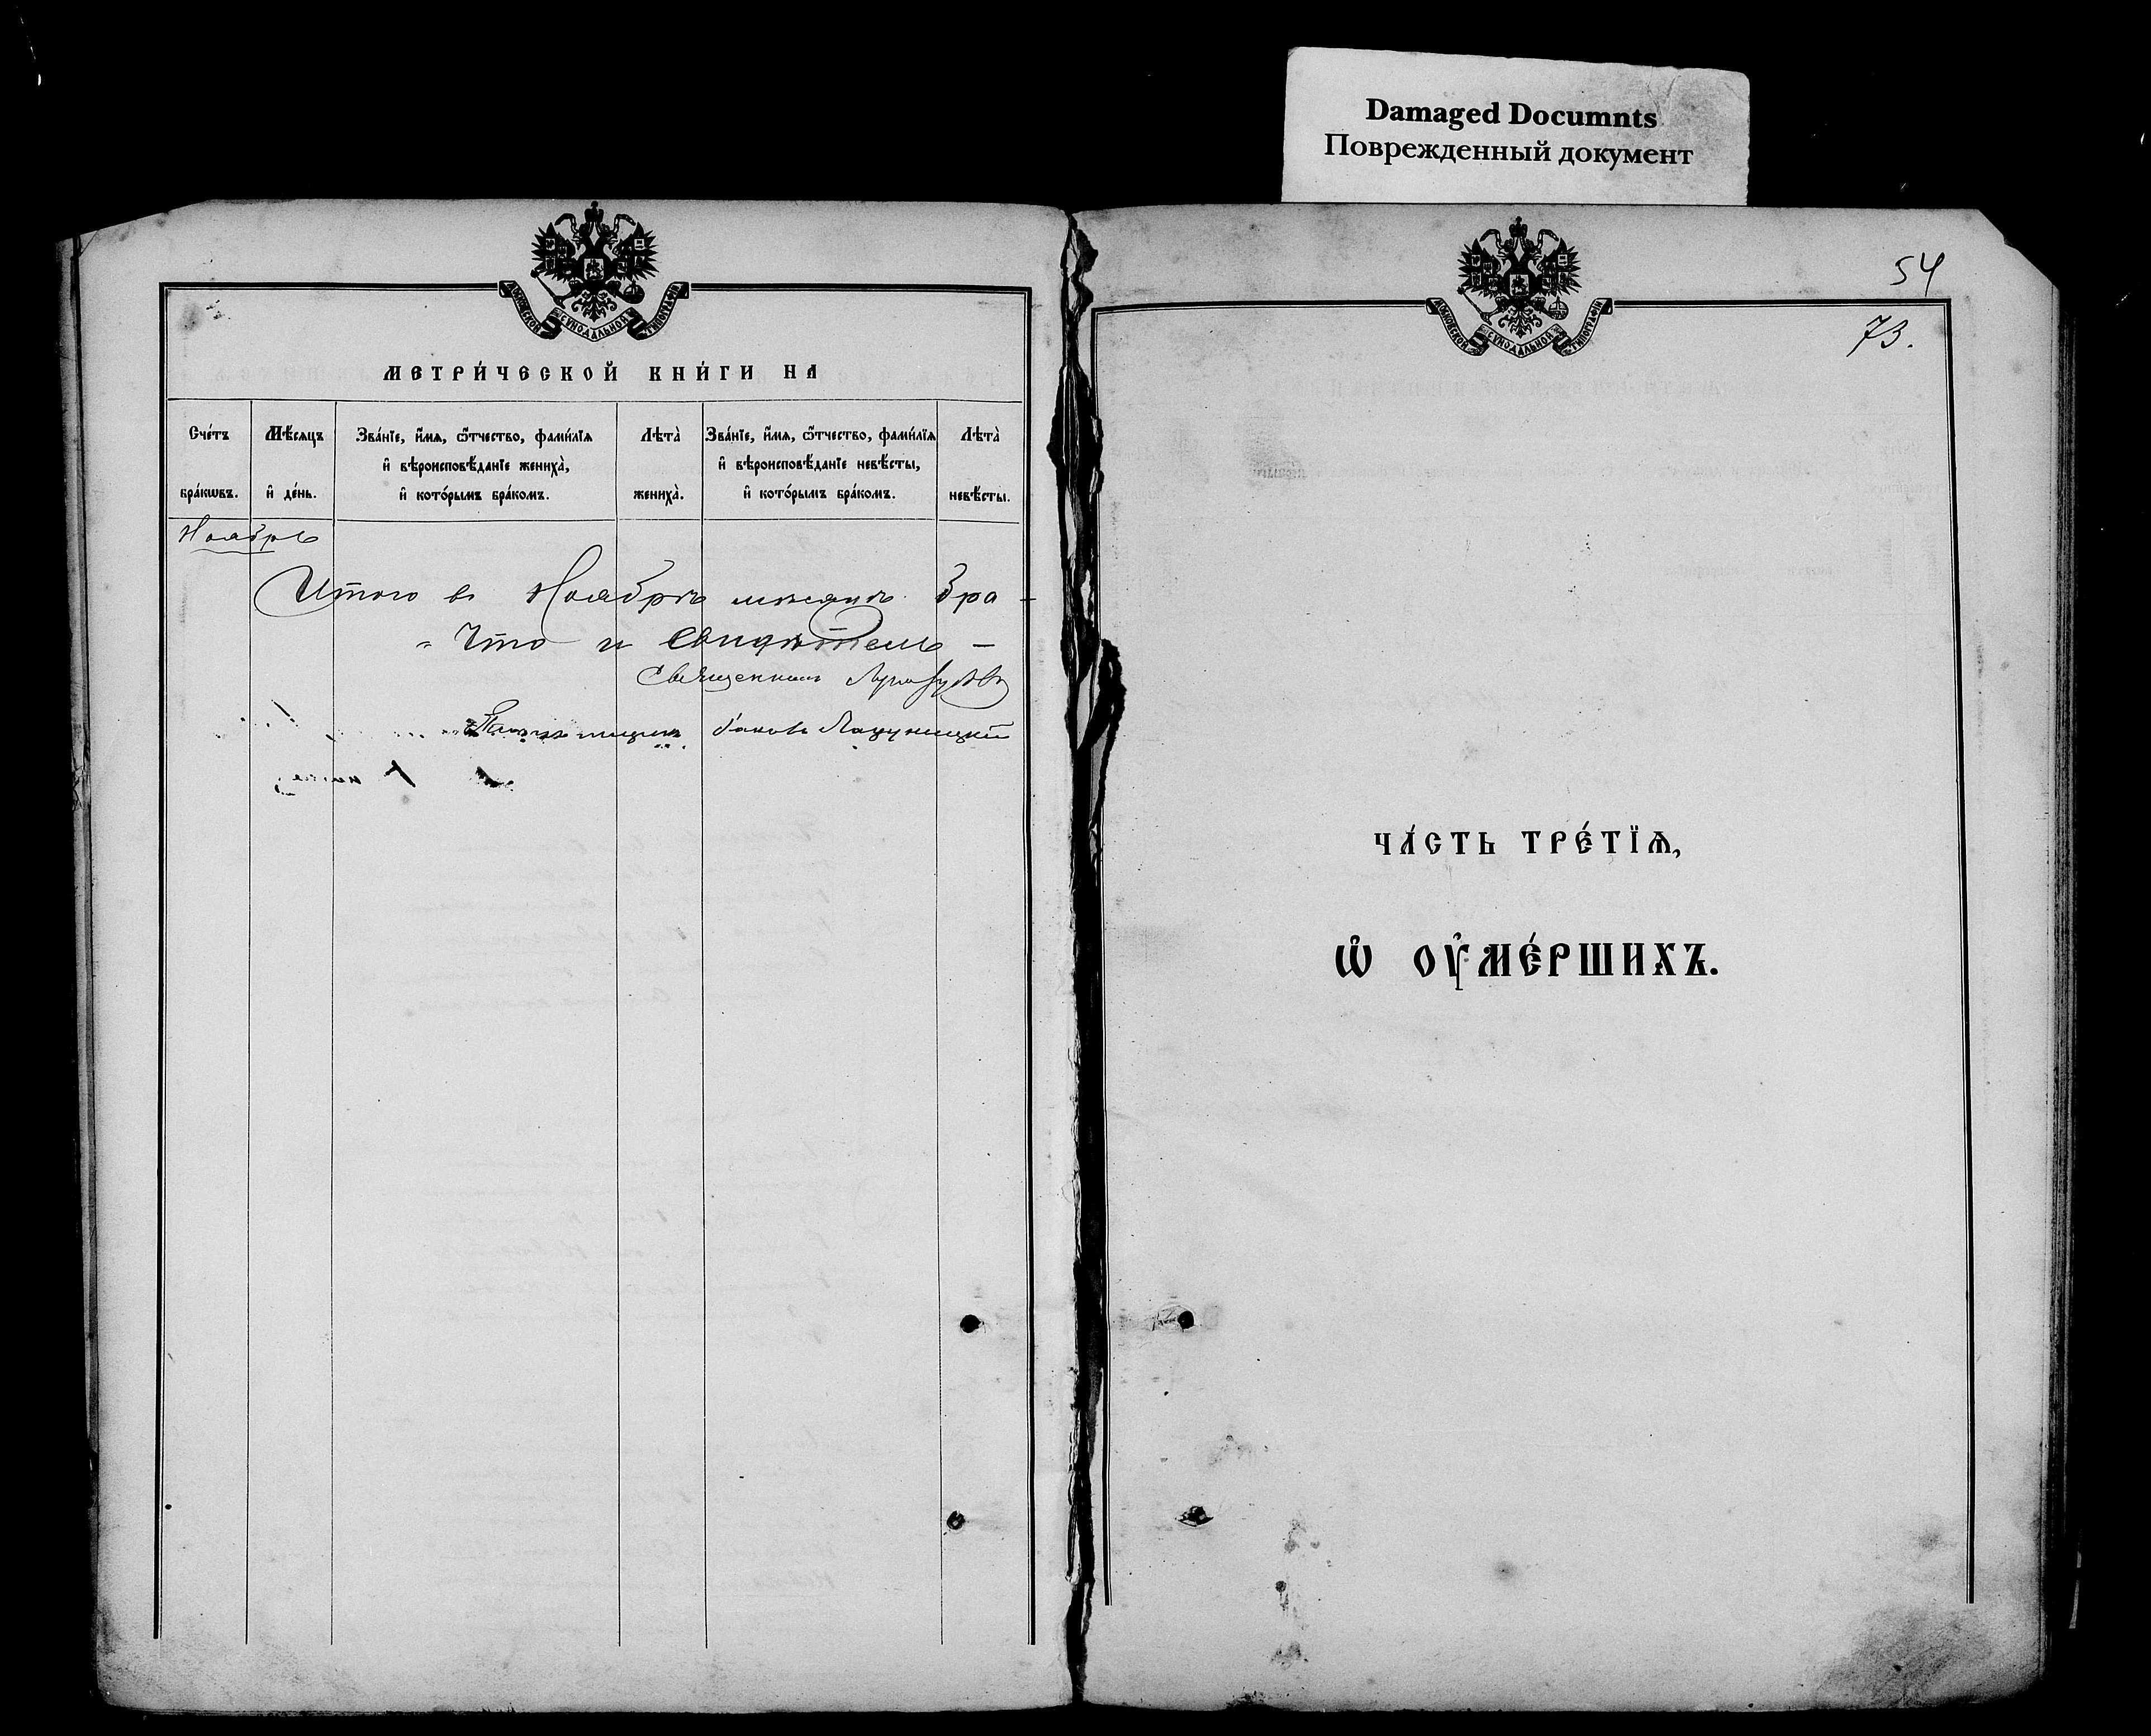 Damaged Documnts
Поврежденный документ
МОСКОВСКОЙ СѴНОДАЛЬНОЙ ТИПОГРАФІИ
МЕТРИ́ЧЕСКОЙ КНИ́ГИ НА
Сче́тъ бра́кѡвъ.
Мѣ́сяцъ и҆ де́нь.
Зва́нїе, и҆́мѧ, ѻ҆́тчество, фами́лїѧ
и҆ вѣроисповѣ́данїе жениха̀,
и҆ кото́рымъ бра́комъ.
Лѣта̀ жениха̀.
Зва́нїе, и҆́мѧ, ѻ҆́тчество, фами́лїѧ
и҆ вѣроисповѣ́данїе невѣ́сты,
и҆ кото́рымъ бра́комъ.
Лѣта̀ невѣ́сты.
Ноябрь
Итого въ Ноябрѣ мѣсяцѣ бра-
Что и свидѣтель-
Священникъ
Псаломщикъ
МОСКОВСКОЙ СѴНОДАЛЬНОЙ ТИПОГРАФІИ
54
73.
ЧА́СТЬ ТРЕ́ТЇѦ,
Ѡ҆ ОУ҆МЕ́РШИХЪ.